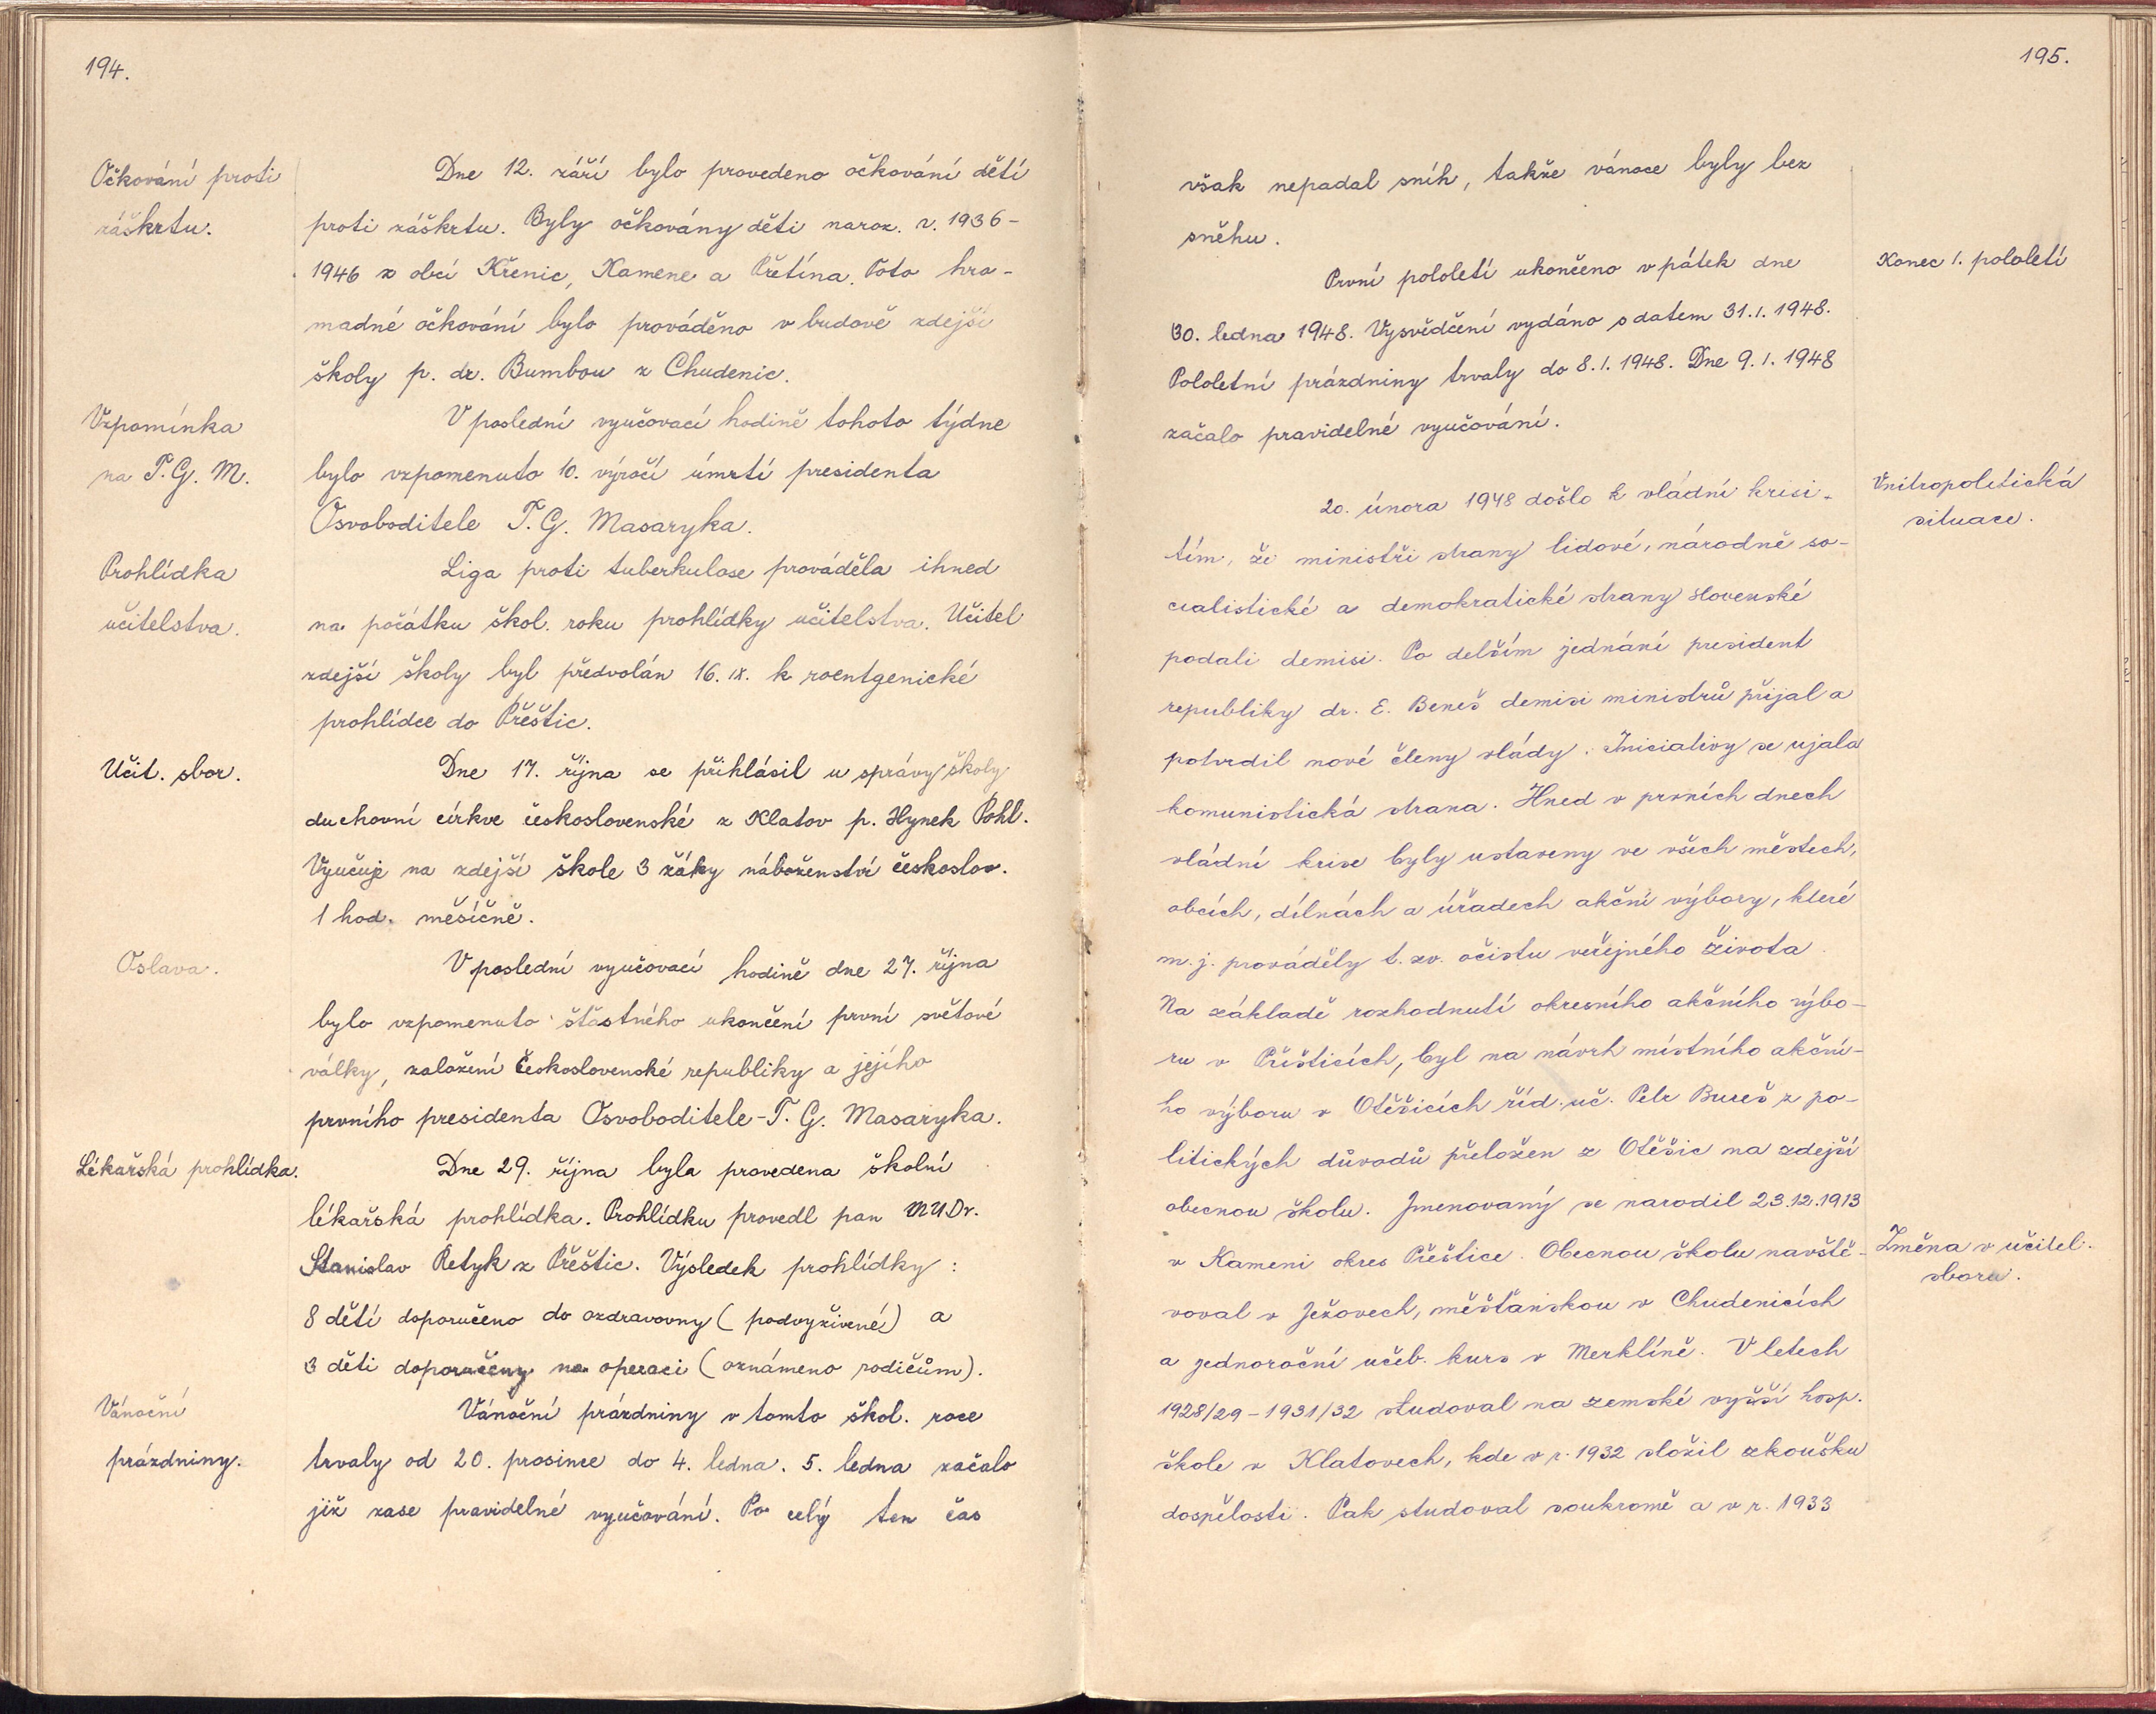 194.
Očkování proti
záškrtu.
Dne 12. září bylo provedeno očkování dětí
proti záškrtu. Byly očkovány děti naroz. r. 1936-
1946 z obcí Křenic, Kamene a Přetína. Toto hro-
madné očkování bylo prováděno v budově zdejší
školy p. dr. Bumbou z Chudenic.
Vzpomínka
na T. G. M.
V poslední vyučovací hodině tohoto týdne
bylo vzpomenuto 10. výročí úmrtí presidenta
Osvoboditele T. G. Masaryka.
Prohlídka
učitelstva.
Liga proti tuberkulose prováděla ihned
na počátku škol. roku prohlídky učitelstva. Učitel
zdejší školy byl předvolán 16. IX. k roentgenické
prohlídce do Přeštic.
Učit. sbor.
Dne 17. října se přihlásil u správy školy
duchovní církve československé z Klatov p. Hynek Pohl.
Vyučuje na zdejší škole 3 žáky náboženství českoslov.
1 hod. měsíčně.
Oslava.
V poslední vyučovací hodině dne 27. října
bylo vzpomenuto šťastného ukončení první světové
války, založení Československé republiky a jejího
prvního presidenta Osvoboditele - T. G. Masaryka.
Lékařská prohlídka.
Dne 29. října byla provedena školní
lékařská prohlídka. Prohlídku provedl pan MUDr.
Stanislav Retyk z Přeštic. Výsledek prohlídky :
8 dětí doporučeno do ozdravovny ( podvyživené) a
3 děti doporučeny na operaci ( oznámeno rodičům).
Vánoční
prázdniny.
Vánoční prázdniny v tomto škol. roce
trvaly od 20. prosince do 4. ledna. 5. ledna začalo
již zase pravidelné vyučování. Po celý ten čas
195.
však nepadal sníh, takže vánoce byly bez
sněhu.
První pololetí ukončeno v pátek dne
30. ledna 1948. Vysvědčení vydáno s datem 31. 1. 1948.
Pololetní prázdniny trvaly do 8. 1. 1948. Dne 9. 1. 1948
začalo pravidelné vyučování.
Konec 1. pololetí
20. února 1948 došlo k vládní krisi
tím, že ministři strany lidové, národně so-
cialistické a demokratické strany slovenské
podali demisi. Po delším jednání president
republiky dr. E. Beneš demisi ministrů přijal a
potvrdil nové členy vlády. Iniciativy se ujala
komunistická strana. Hned v prvních dnech
vládní krise byly ustaveny ve všech městech,
obcích, dílnách a úřadech akční výbory, které
m. j. prováděly t. zv. očistu veřejného života.
Na základě rozhodnutí okresního akčního výbo-
ru v Přešticích, byl na návrh místního akční-
ho výboru v Otěšicích říd. uč. Petr Bureš z po-
litických důvodů přeložen z Otěšic na zdejší
obecnou školu. Jmenovaný se narodil 23. 12. 1913
v Kameni okres Přeštice. Obecnou školu navště-
voval v Ježovech, měšťanskou v Chudenicích
a jednoroční učeb. kurs v Merklíně. V letech
1928/29 - 1931/32 studoval na zemské vyšší hosp.
škole v Klatovech, kde v r. 1932 složil zkoušku
dospělosti. Pak studoval soukromě a v r. 1933
Vnitropolitická
situace.
Změna v učitel.
sboru.